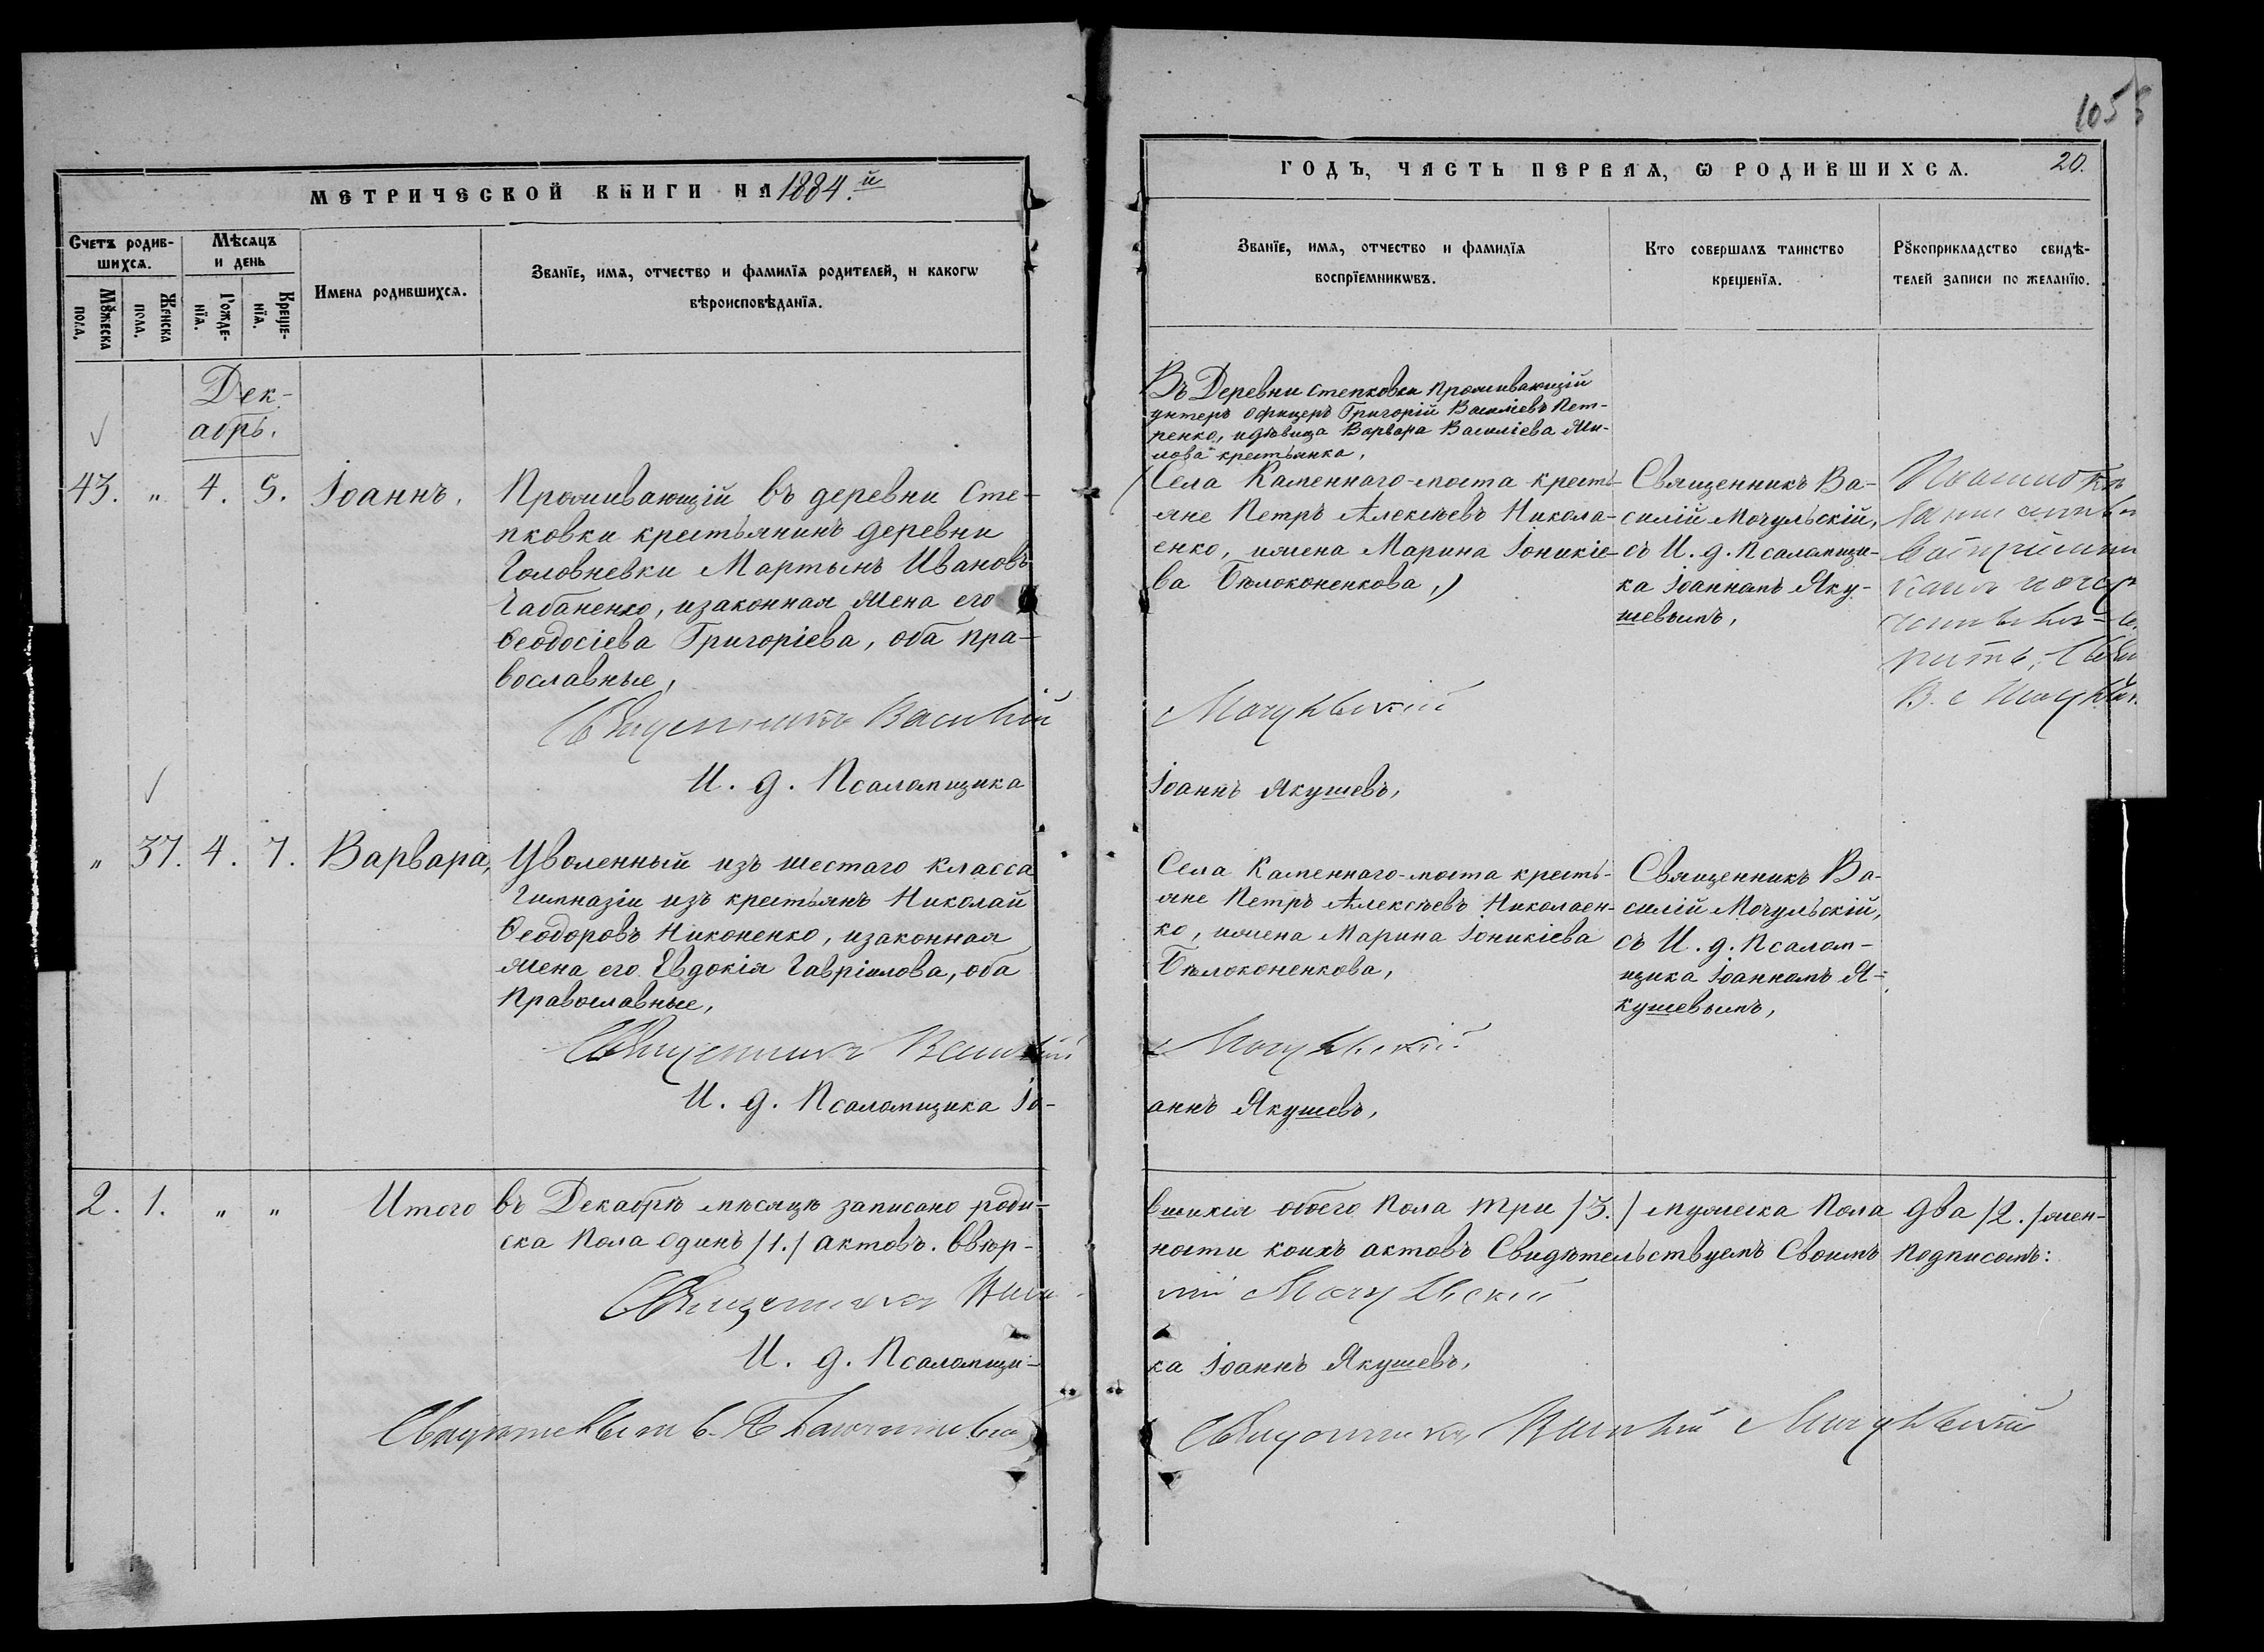 1058
МЕТРИЧЕСКОЙ КНИГИ НА 1884.й
ГОДЪ, ЧАСТЬ ПЕРВАѦ, Ѡ РОДИВШИХСѦ. 20.
Счетъ родив-
шихсѧ.
Мѣсѧцъ
и день
Мꙋжеска
пола.
Женска
пола.
Рожде-
нїѧ.
Креще-
нїѧ.
Имена родившихсѧ.
Званїе, имѧ, отчество и фамилїѧ родителей, и какогѡ
вѣроисповѣданїѧ.
Званїе, имѧ, отчество и фамилїѧ
воспрїемникѡвъ.
Кто совершалъ таинство
крещенїѧ.
Рꙋкоприкладство свидѣ-
телей записи по желанїю.
Дек-
абрь.
43. " 4. 5. Іоаннъ.
Проживающій въ деревни Сте-
пковки крестьянинъ деревни
Головневки Мартынъ Ивановъ
Чабаненко, изаконная жена его
Ѳеодосіева Григоріева, оба пра-
вославные,
Священникъ Василій
И. д. Псаломщика
Въ Деревни Степковки проживающій
унтеръ офицеръ Григорій Василіевъ Пет-
ренко, идѣвица Варвара Василіева Ми-
лова крестьянка,
(Села Каменнаго-моста кресть-
яне Петръ Алексѣевъ Никола-
енко, ижена Марина Іоникіе-
ва Бѣлоконенкова,)
Мочульскій
Іоаннъ Якушевъ,
Священникъ Ва-
силій Мочульскій,
съ И. д. Псаломщи-
ка Іоанномъ Яку-
шевымъ,
" 37. 4. 7. Варвара,
Уволенный изъ шестаго класса
Гимназіи изъ крестьянъ Николай
Ѳеодоровъ Никоненко, изаконная
жена его Евдокія Гавріилова, оба
Православные,
Священникъ Василій
И. д. Псаломщика Іо-
Села Каменнаго-моста кресть-
яне Петръ Алексѣевъ Николаен-
ко, ижена Марина Іоникіева
Бѣлоконенкова,
Мочульскій
аннъ Якушевъ,
Священникъ Ва-
силій Мочульскій,
съ И. д. Псалом-
щика Іоанномъ Я-
кушевымъ,
2. 1. " " Итого въ Декабрѣ мѣсяцѣ записано роди-
вшихся обоего Пола три /3./ мужеска Пола два /2./ жен-
ска Пола одинъ /1./ актовъ. Ввѣр-
ности коихъ актовъ Свидѣтельствуемъ Своимъ подписомъ:
Священникъ Васи-
лій Мочульскій
И. д. Псаломщи-
ка Іоаннъ Якушевъ,
Священникъ Василій Мочульскій